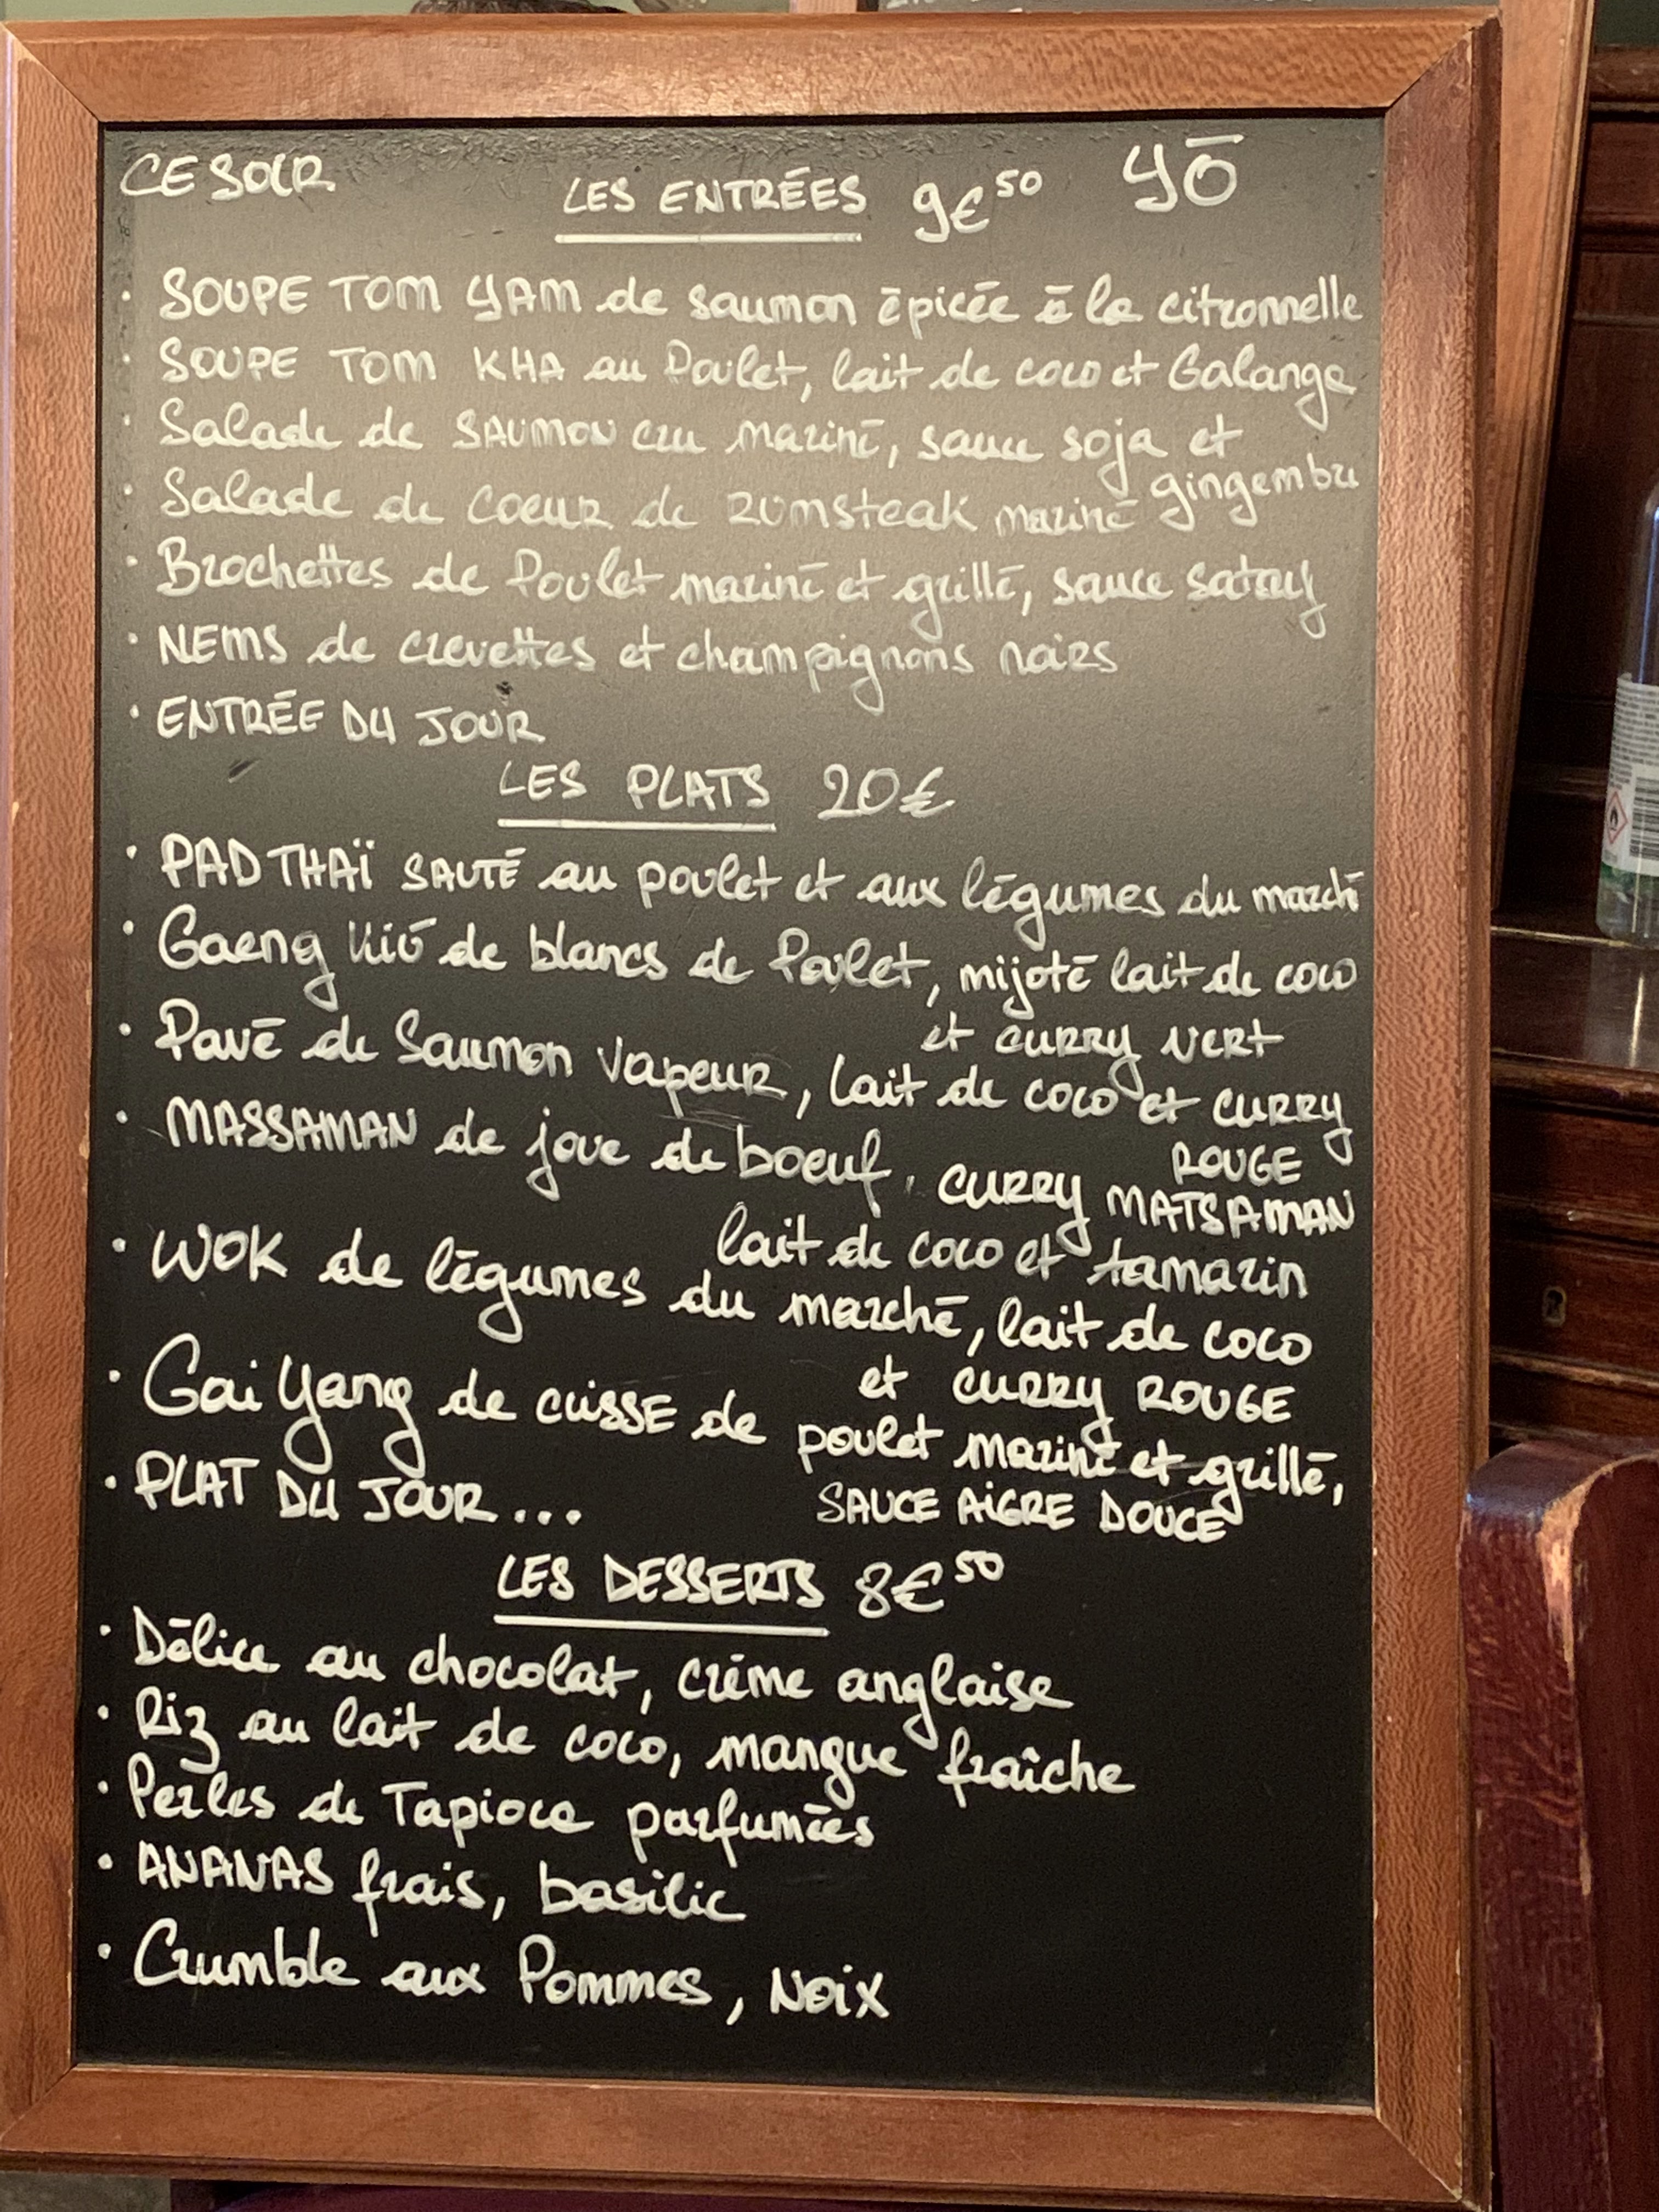 CE SOIR LES ENTRÉES 9€50 YŌ
· SOUPE TOM YAM de saumon épicée à la citronnelle
· SOUPE TOM KHA au Poulet, lait de coco et Galanga
· Salade de SAUMON cru mariné, sauce soja et
gingembre
· Salade de coeur de rumsteak mariné
· Brochettes de Poulet mariné et grillé, sauce satay
· NEMS de crevettes et champignons noirs
· ENTRÉE DU JOUR
LES PLATS 20€
· PAD THAÏ SAUTÉ au poulet et aux légumes du marché
· Gaeng Kió de blancs de Poulet, mijoté lait de coco
et CURRY VERT
· Pavé de Saumon vapeur, lait de coco et CURRY
ROUGE
· MASSAMAN de joue de boeuf, CURRY MATSAMAN
lait de coco et tamarin
· WOK de légumes du marché, lait de coco
et CURRY ROUGE
· Gai Yang de cuisse de poulet mariné et grillé,
SAUCE AIGRE DOUCE
· PLAT DU JOUR...
LES DESSERTS 8€50
· Délice au chocolat, crème anglaise
· Riz au lait de coco, mangue fraîche
· Perles de Tapioca parfumées
· ANANAS frais, basilic
· Crumble aux Pommes, Noix